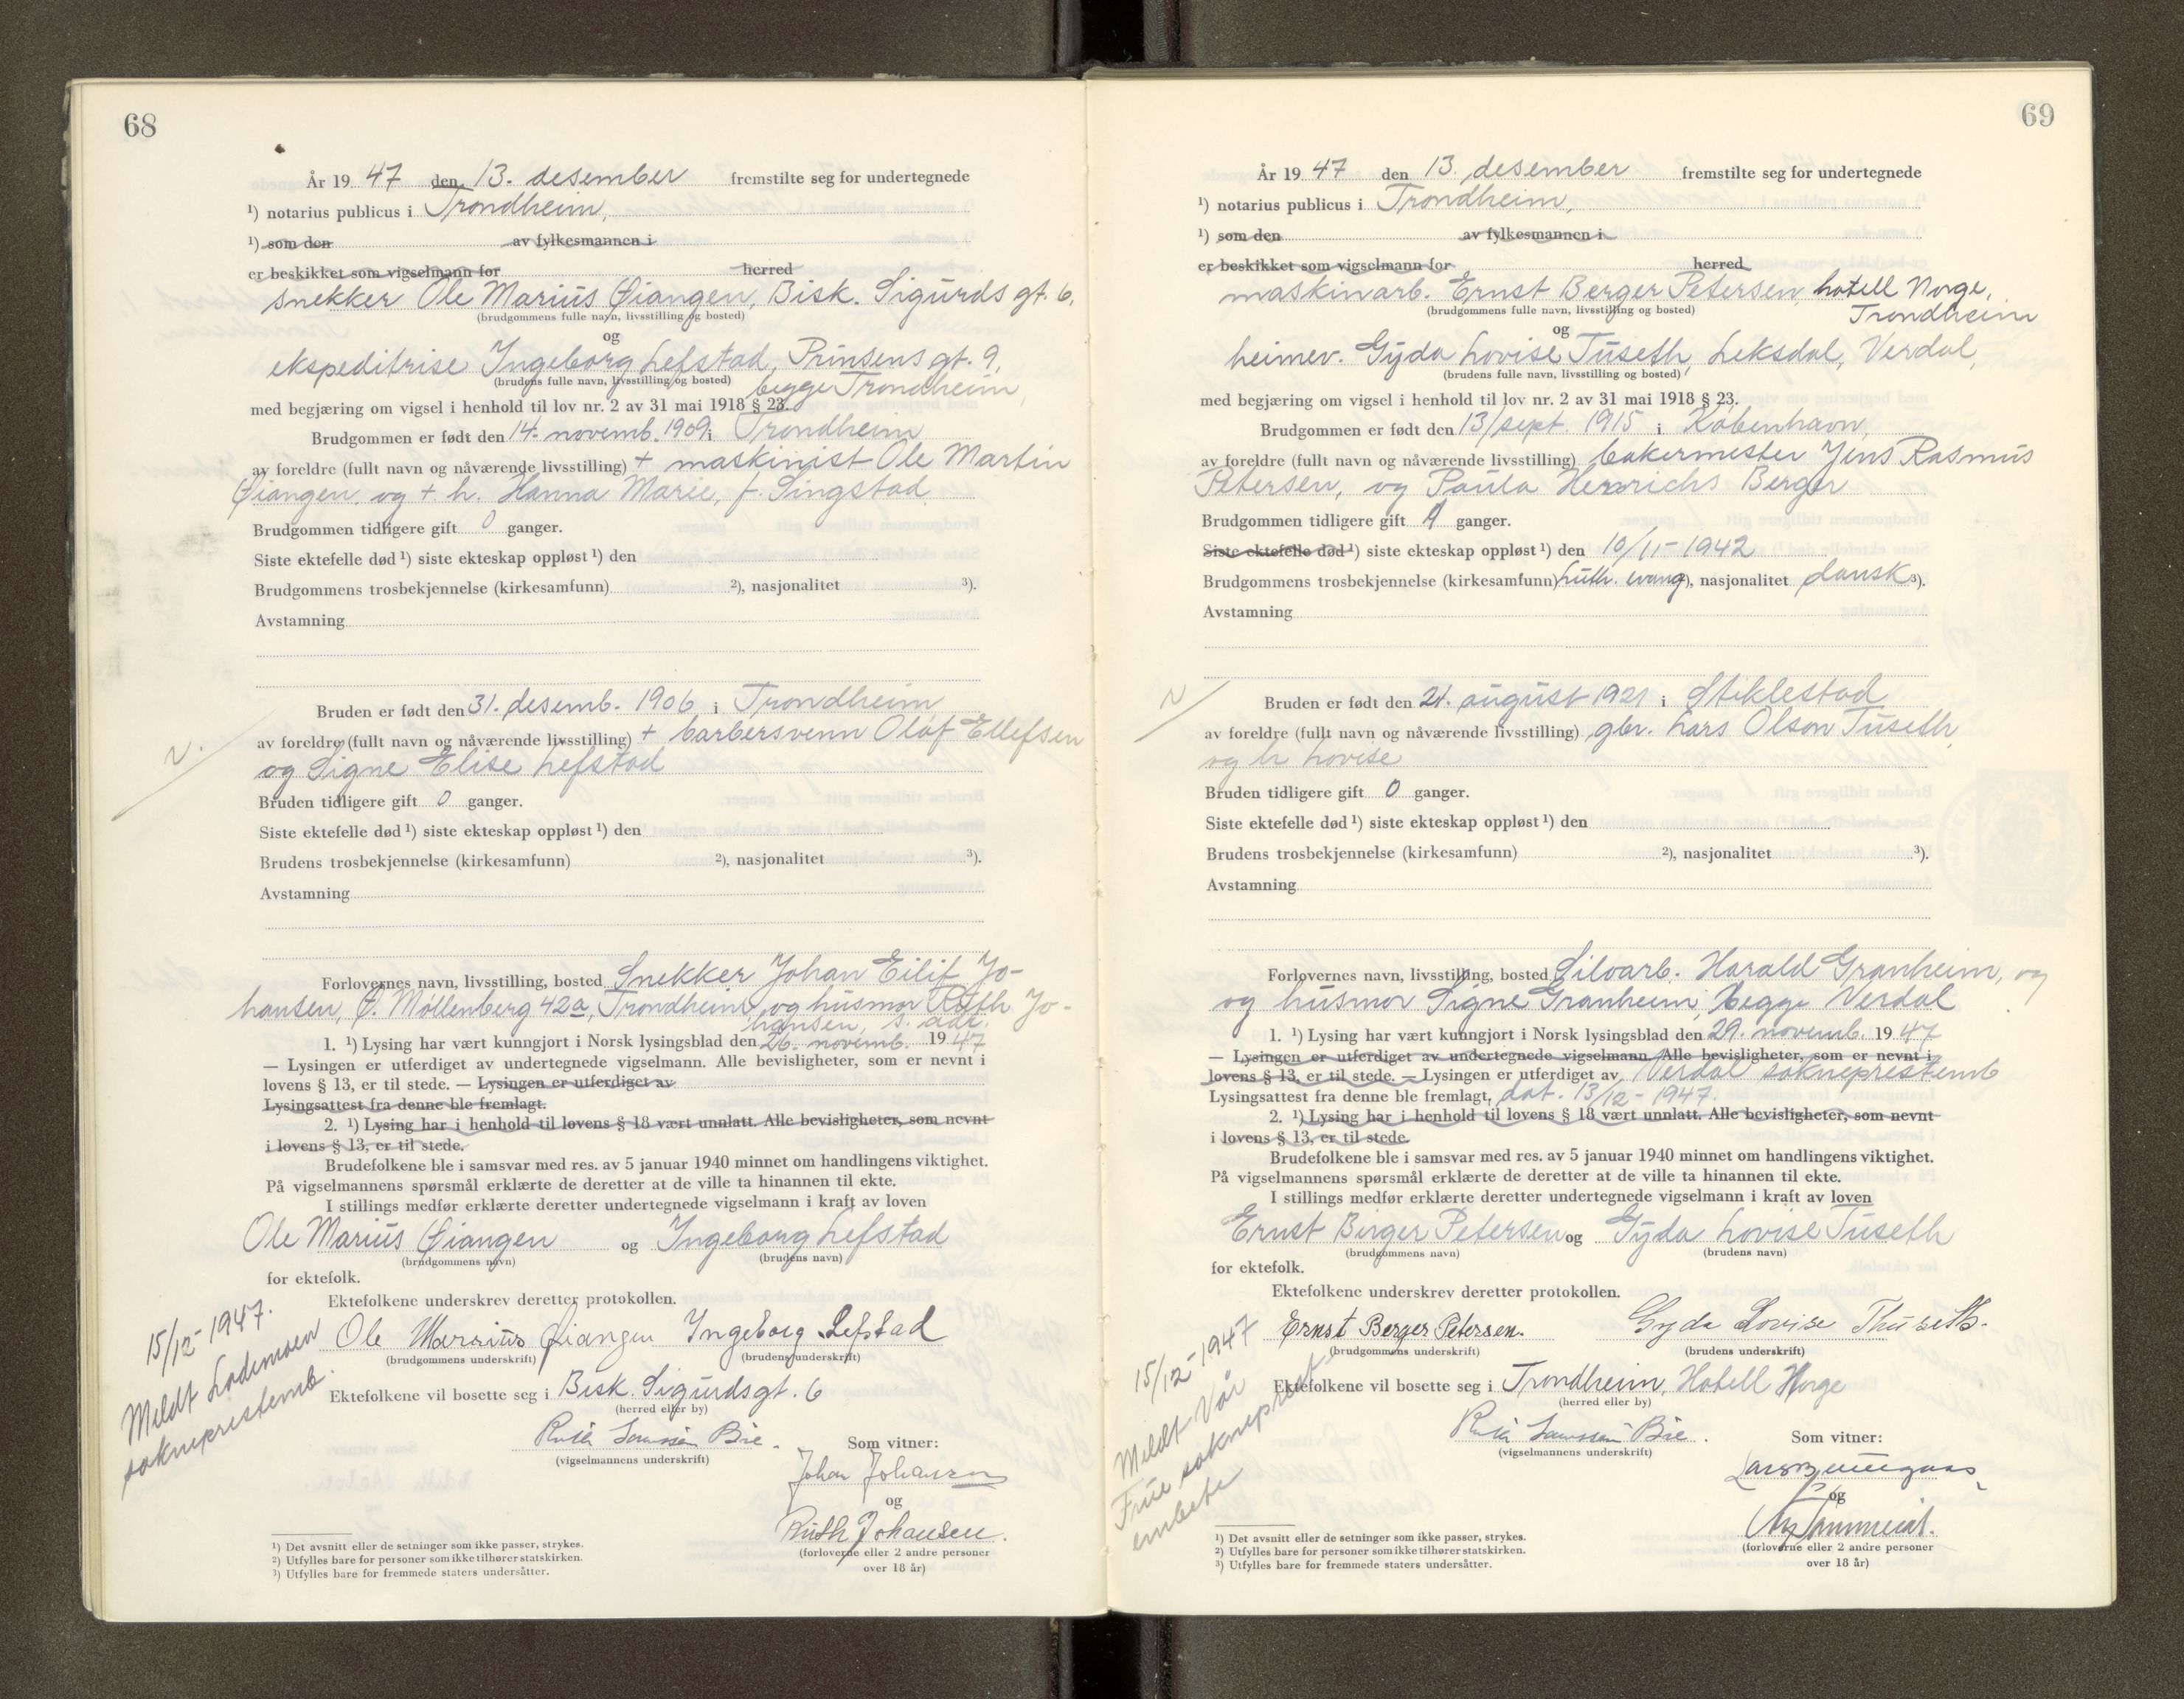 68
År 19 47 den 13. desember fremstilte seg for undertegnede
¹) notarius publicus i Trondheim,
¹) som den av fylkesmannen i
er beskikket som vigselmann for herred
snekker Ole Marius Øiangen, Bisk. Sigurds gt. 6,
(brudgommens fulle navn, livsstilling og bosted)
og
ekspeditrise Ingeborg Lefstad, Prinsens gt. 9,
(brudens fulle navn, livsstilling og bosted) begge Trondheim,
med begjæring om vigsel i henhold til lov nr. 2 av 31 mai 1918 § 23.
Brudgommen er født den 14. novemb. 1909 i Trondheim
av foreldre (fullt navn og nåværende livsstilling) + maskinist Ole Martin
Øiangen og + h. Hanna Marie, f. Singstad
Brudgommen tidligere gift 0 ganger.
Siste ektefelle død ¹) siste ekteskap oppløst ¹) den
Brudgommens trosbekjennelse (kirkesamfunn) ²), nasjonalitet ³).
Avstamning
Bruden er født den 31. desemb. 1906 i Trondheim
av foreldre (fullt navn og nåværende livsstilling) + barbersvenn Olaf Ellefsen
N.
og Signe Elise Lefstad
Bruden tidligere gift 0 ganger.
Siste ektefelle død ¹) siste ekteskap oppløst ¹) den
Brudens trosbekjennelse (kirkesamfunn) ²), nasjonalitet ³).
Avstamning
Forlovernes navn, livsstilling, bosted Snekker Johan Eilif Jo-
hansen, Ø. Møllenberg 42a, Trondheim, og husmor Ruth Jo-
hansen, s. adr.
1. ¹) Lysing har vært kunngjort i Norsk lysingsblad den 26. novemb. 19 47
— Lysingen er utferdiget av undertegnede vigselmann. Alle bevisligheter, som er nevnt i
lovens § 13, er til stede. — Lysingen er utferdiget av
Lysingsattest fra denne ble fremlagt.
2. ¹) Lysing har i henhold til lovens § 18 vært unnlatt. Alle bevisligheter, som nevnt
i lovens § 13, er til stede.
Brudefolkene ble i samsvar med res. av 5 januar 1940 minnet om handlingens viktighet.
På vigselmannens spørsmål erklærte de deretter at de ville ta hinannen til ekte.
I stillings medfør erklærte deretter undertegnede vigselmann i kraft av loven
Ole Marius Øiangen og Ingeborg Lefstad
(brudgommens navn) (brudens navn)
for ektefolk.
Ektefolkene underskrev deretter protokollen.
Ole Marius Øiangen Ingeborg Lefstad
(brudgommens underskrift) (brudens underskrift)
15/12-1947.
Meldt Lademoen
sokneprestemb.
Ektefolkene vil bosette seg i Bisk. Sigurdsgt. 6
(herred eller by)
Som vitner:
(vigselmannens underskrift)
Johan Johansen
og
Ruth Johansen.
(forloverne eller 2 andre personer
over 18 år)
¹) Det avsnitt eller de setninger som ikke passer, strykes.
²) Utfylles bare for personer som ikke tilhører statskirken.
³) Utfylles bare for fremmede staters undersåtter.
69
År 19 47 den 13. desember fremstilte seg for undertegnede
¹) notarius publicus i Trondheim,
¹) som den av fylkesmannen i
er beskikket som vigselmann for herred
maskinarb. Ernst Berger Petersen, hotell Norge,
Trondheim
(brudgommens fulle navn, livsstilling og bosted)
og
heimev. Gyda Lovise Tuseth, Leksdal, Verdal,
(brudens fulle navn, livsstilling og bosted)
med begjæring om vigsel i henhold til lov nr. 2 av 31 mai 1918 § 23.
Brudgommen er født den 13/sept. 1915 i København,
av foreldre (fullt navn og nåværende livsstilling) bakermester Jens Rasmus
Petersen, og Paula Henrichs Berger
Brudgommen tidligere gift 1 ganger.
Siste ektefelle død ¹) siste ekteskap oppløst ¹) den 10/11-1942
Brudgommens trosbekjennelse (kirkesamfunn) luth. evang ), nasjonalitet dansk ³).
Avstamning
N
Bruden er født den 21. august 1921 i Stiklestad
av foreldre (fullt navn og nåværende livsstilling) gbr. Lars Olson Tuseth
og h Lovise
Bruden tidligere gift 0 ganger.
Siste ektefelle død ¹) siste ekteskap oppløst ¹) den
Brudens trosbekjennelse (kirkesamfunn) ²), nasjonalitet ³).
Avstamning
Forlovernes navn, livsstilling, bosted Siloarb. Harald Granheim, og
og husmor Signe Granheim, begge Verdal
1. ¹) Lysing har vært kunngjort i Norsk lysingsblad den 29. novemb. 19 47
— Lysingen er utferdiget av undertegnede vigselmann. Alle bevisligheter, som er nevnt i
lovens § 13, er til stede. — Lysingen er utferdiget av Verdal sokneprestemb
Lysingsattest fra denne ble fremlagt, dat. 13/12-1947.
2. ¹) Lysing har i henhold til lovens § 18 vært unnlatt. Alle bevisligheter, som nevnt
i lovens § 13, er til stede.
Brudefolkene ble i samsvar med res. av 5 januar 1940 minnet om handlingens viktighet.
På vigselmannens spørsmål erklærte de deretter at de ville ta hinannen til ekte.
I stillings medfør erklærte deretter undertegnede vigselmann i kraft av loven
Ernst Birger Petersen og Gyda Lovise Tuseth
(brudgommens navn) (brudens navn)
for ektefolk.
Ektefolkene underskrev deretter protokollen.
Ernst Berger Petersen. Gyda Lovise Thuseth.
(brudgommens underskrift) (brudens underskrift)
15/12-1947
Meldt Vår
Frue sokneprest-
embete
Ektefolkene vil bosette seg i Trondheim, Hotell Norge
(herred eller by)
Som vitner:
(vigselmannens underskrift)
og
(forloverne eller 2 andre personer
over 18 år)
¹) Det avsnitt eller de setninger som ikke passer, strykes.
²) Utfylles bare for personer som ikke tilhører statskirken.
³) Utfylles bare for fremmede staters undersåtter.